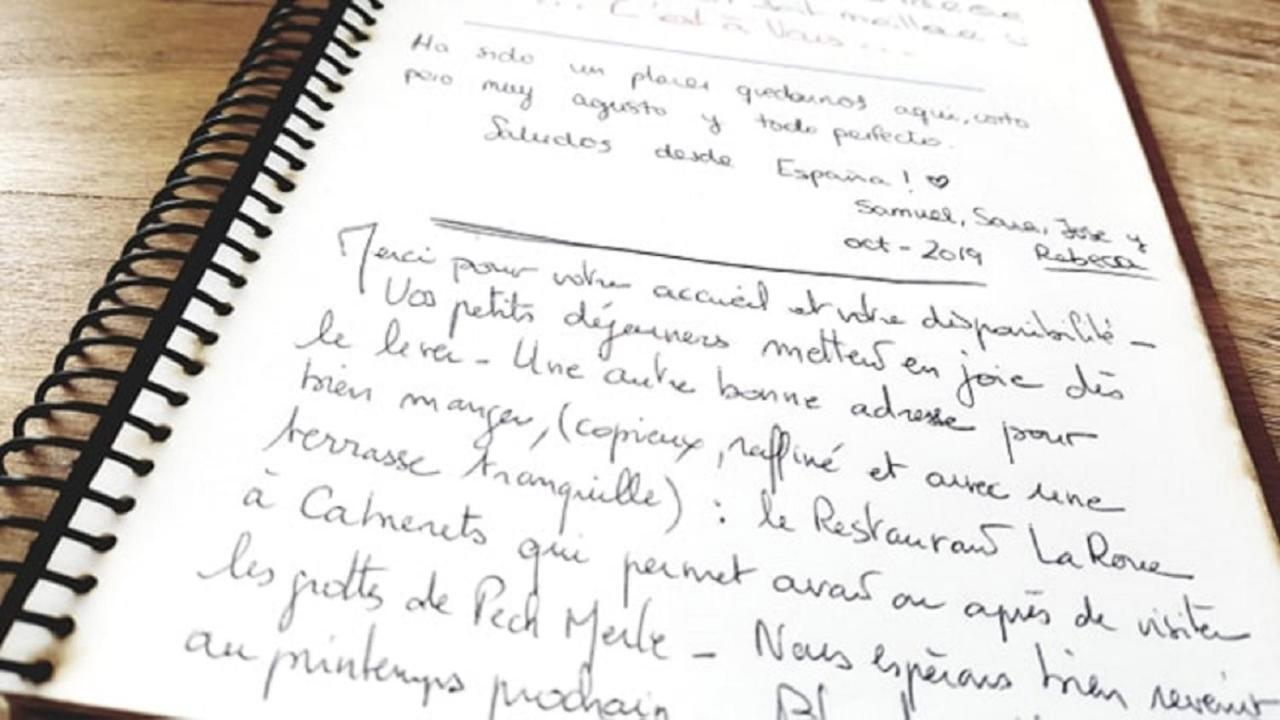 sont meilleur
... C'est à Vous ...
Ha sido un placer quedarnos aqui, corto
pero muy agusto y todo perfecto.
Saludos desde España! ♡
Samuel, Sara, Jose y
oct - 2019 Rebeca
Merci pour votre accueil et votre disponibilité -
Vos petits déjeuners mettent en joie dès
le lever - Une autre bonne adresse pour
bien manger, (copieux, raffiné et avec une
terrasse tranquille) : le Restaurant La Roue
à Cabrerets qui permet avant ou après de visiter
les grottes de Pech Merle - Nous espérons bien revenir
au printemps prochain